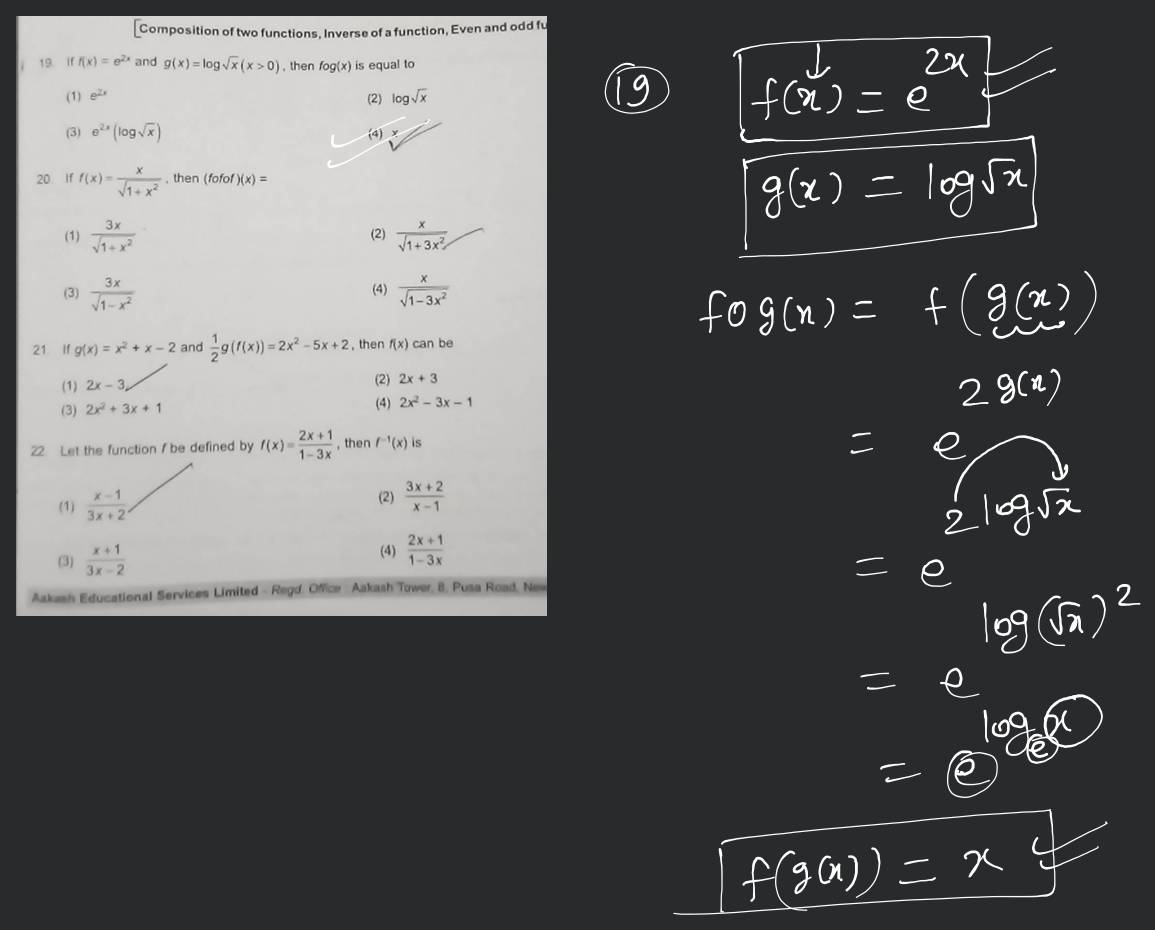 [Composition of two functions, Inverse of a function, Even and odd fu
19. If f(x) = e²ˣ and g(x) = log√x (x > 0), then fog(x) is equal to
(1) e²ˣ (2) log√x
(3) e²ˣ (log√x) (4) x
20. If f(x) = x/√(1+x²), then (fofof)(x) =
(1) 3x/√(1+x²) (2) x/√(1+3x²)
(3) 3x/√(1–x²) (4) x/√(1–3x²)
21. If g(x) = x² + x – 2 and 1/2 g(f(x)) = 2x² – 5x + 2, then f(x) can be
(1) 2x – 3 (2) 2x + 3
(3) 2x² + 3x + 1 (4) 2x² – 3x – 1
22. Let the function f be defined by f(x) = (2x+1)/(1–3x), then f⁻¹(x) is
(1) (x–1)/(3x+2) (2) (3x+2)/(x–1)
(3) (x+1)/(3x–2) (4) (2x+1)/(1–3x)
Aakash Educational Services Limited - Regd. Office : Aakash Tower, 8, Pusa Road, New
19
f(x) = e^2x
g(x) = log√x
fog(x) = f(g(x))
= e^2g(x)
= e^2log√x
= e^log(√x)²
= e^logₑx
f(g(x)) = x